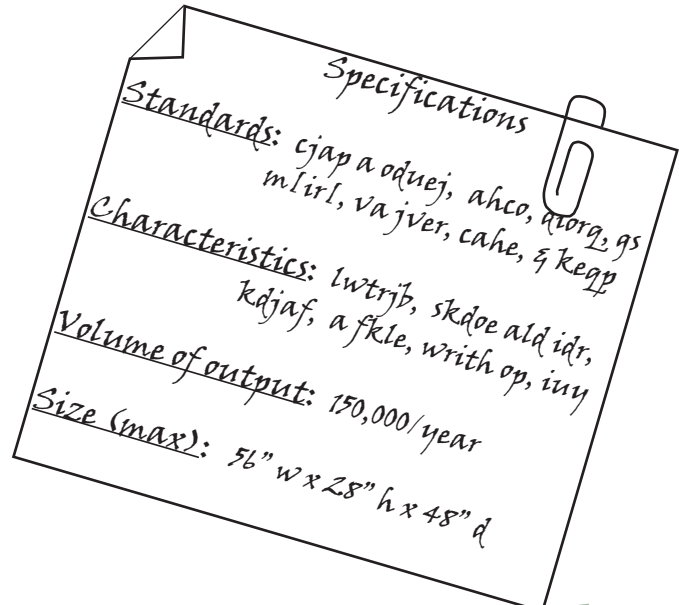 Specifications
Standards: cjap a oduej, ahco, aiorq, gs
mlirl, va jver, cahe, & keqp
Characteristics: lwtrjb, skdoe ald idr,
kdjaf, a fkle, writh op, iuy
Volume of output: 150,000/year
Size (max): 56" w x 28" h x 48" d